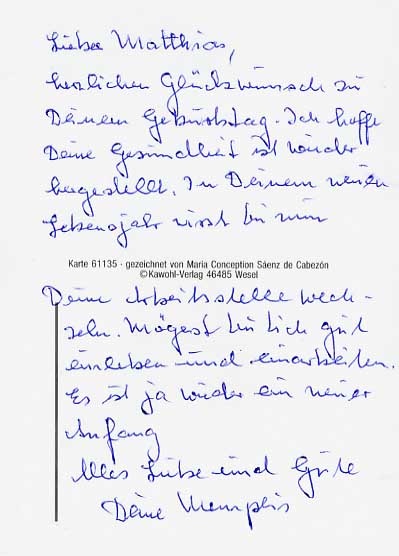 Lieber Matthias,
herzlichen Glückwunsch zu
Deinem Geburtstag. Ich hoffe
Deine Gesundheit ist wieder
hergestellt. In Deinem neuen
Lebensjahr wirst Du nun
Karte 61135 · gezeichnet von Maria Conception Sáenz de Cabezón
©Kawohl-Verlag 46485 Wesel
Deine Arbeitsstelle wech-
seln. Mögest Du Dich gut
einleben und einarbeiten.
Es ist ja wieder ein neuer
Anfang
Alles Liebe und Gute
Deine Memplis